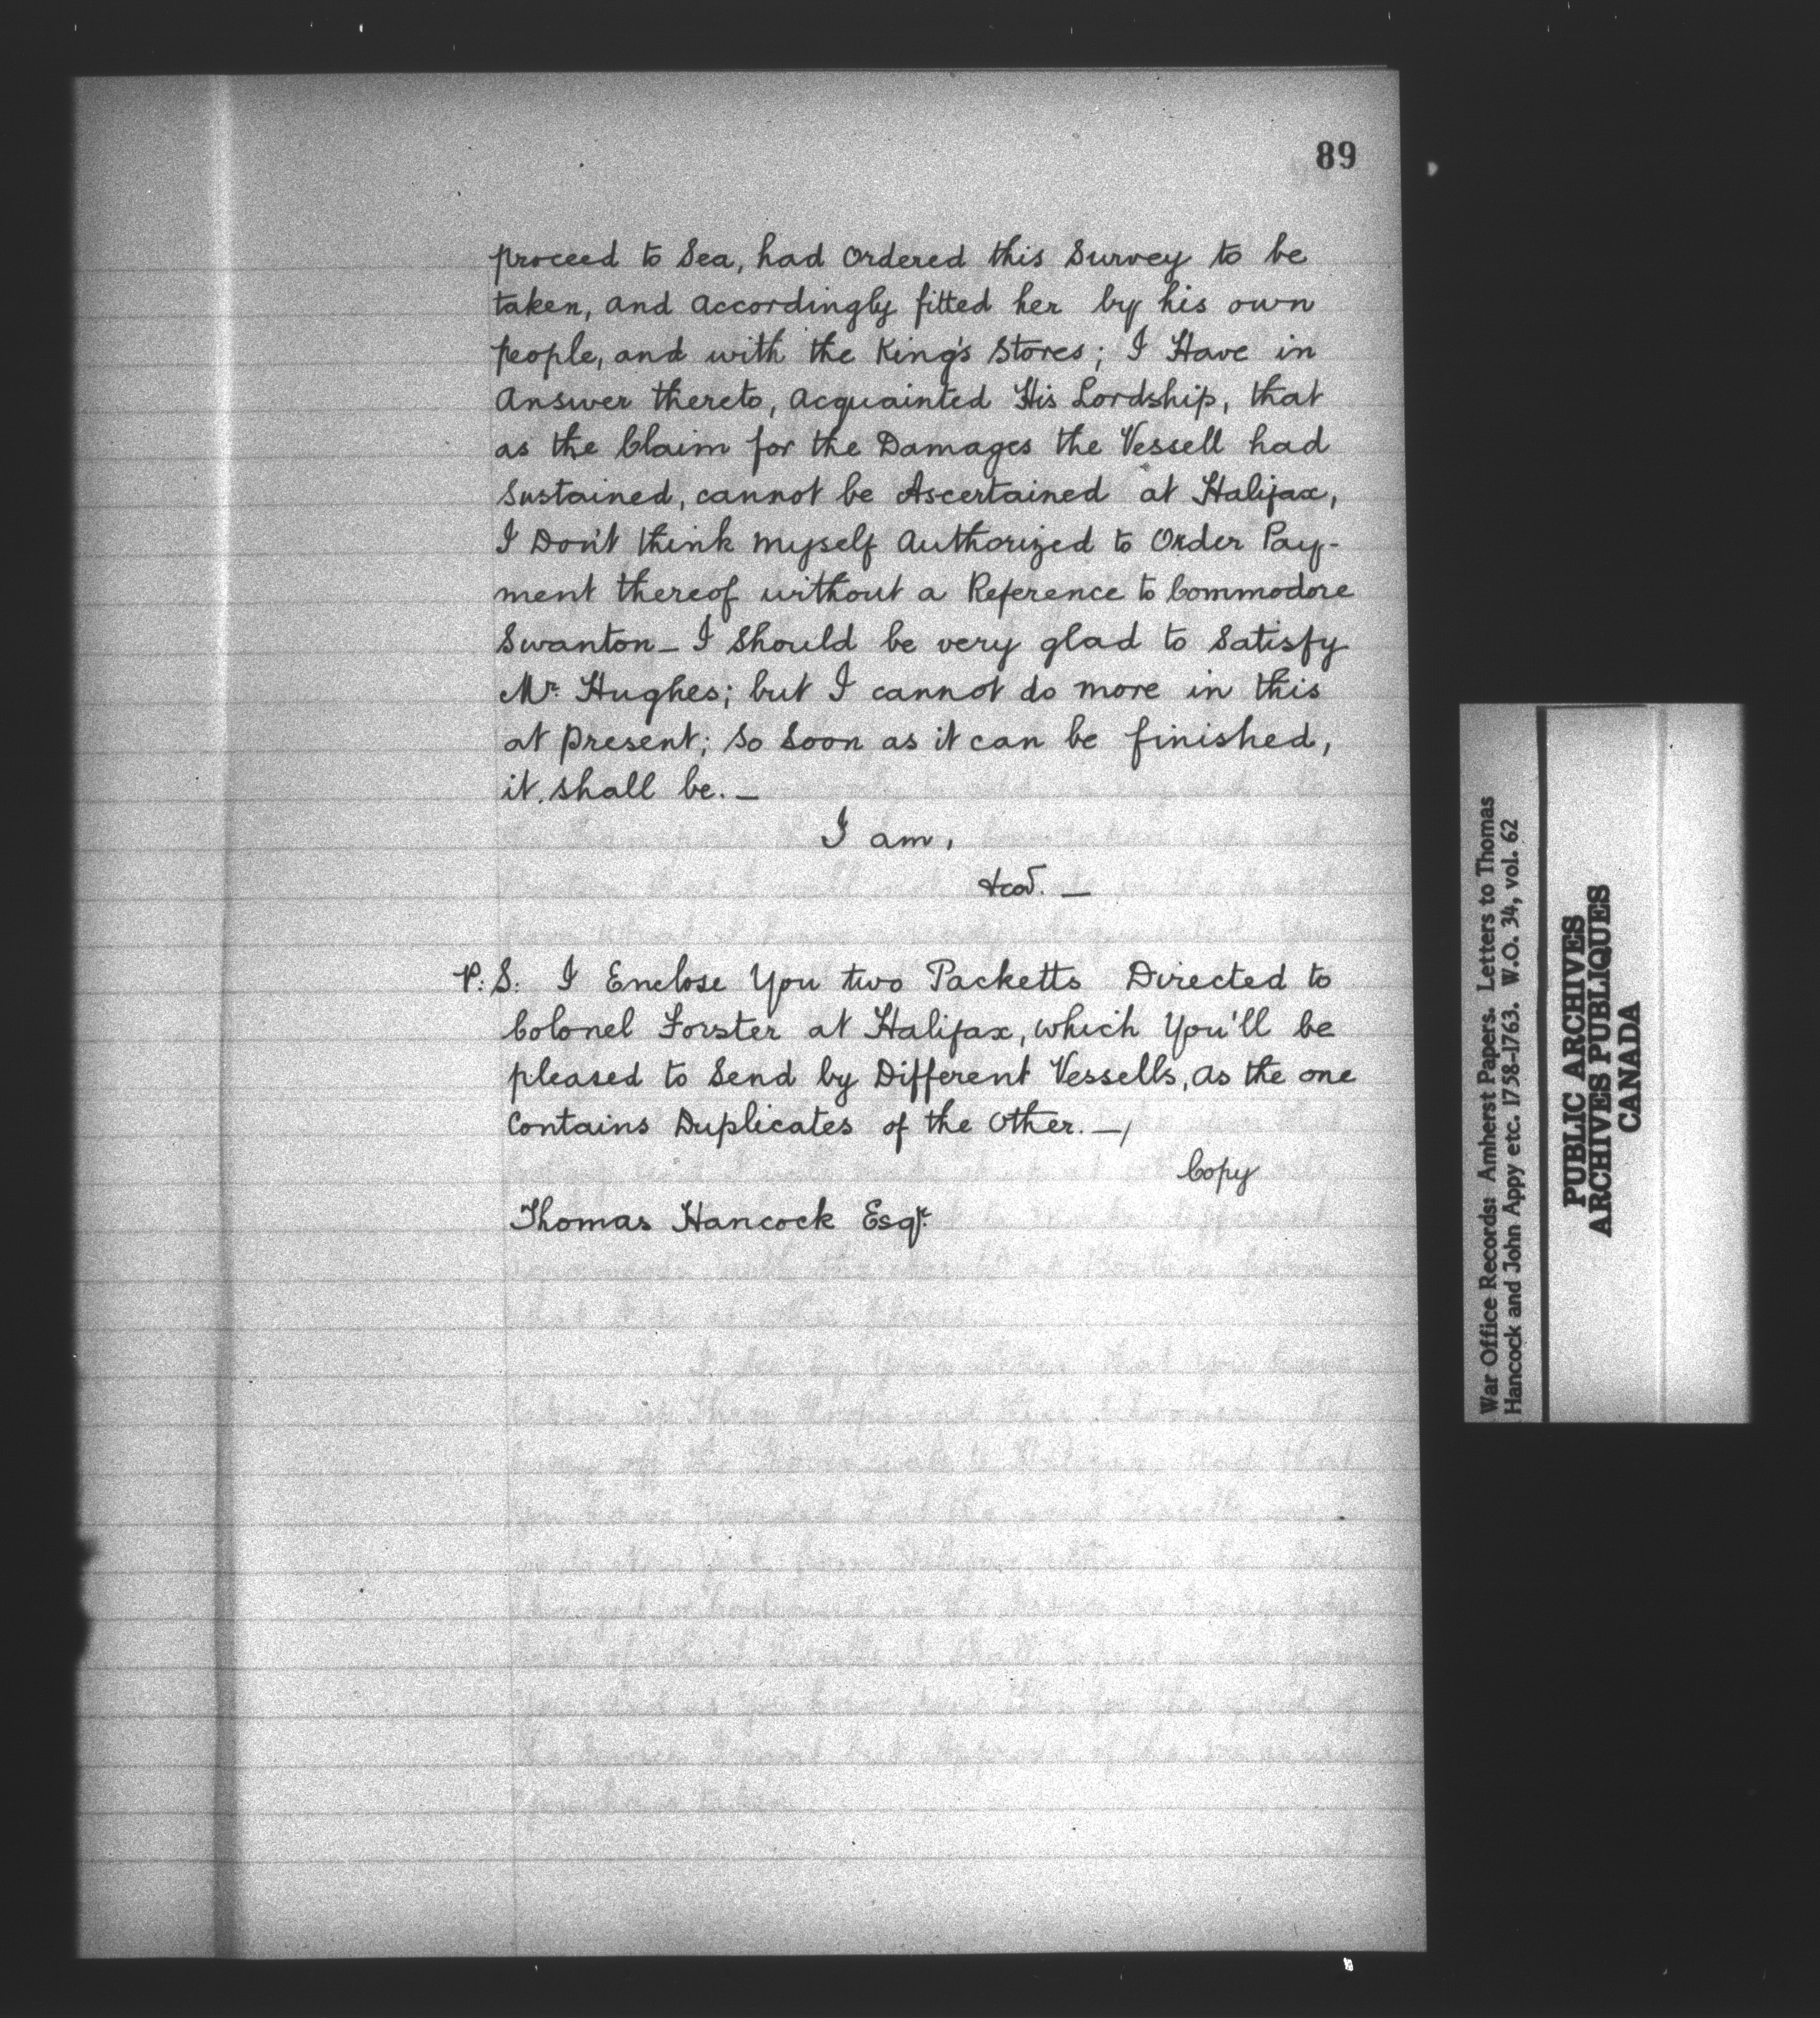 89
proceed to Sea, had Ordered this Survey to be
taken, and accordingly fitted her by his own
people, and with the King's Stores; I Have in
Answer thereto, acquainted His Lordship, that
as the Claim for the Damages the Vessell had
Sustained, cannot be Ascertained at Halifax,
I Don't think myself Authorized to Order Pay-
ment thereof without a Reference to Commodore
Swanton_ I Should be very glad to Satisfy
Mr. Hughes; but I cannot do more in this
at present; So Soon as it can be finished,
it shall be. _
I am,
&ca. _
P.S. I Enclose You two Packetts Directed to
Colonel Forster at Halifax, which You'll be
pleased to Send by Different Vessells, as the one
Contains Duplicates of the Other. _,
Copy
Thomas Hancock Esqr.
War Office Records: Amherst Papers. Letters to Thomas
Hancock and John Appy etc. 1758-1763. W.O. 34, vol. 62
PUBLIC ARCHIVES
ARCHIVES PUBLIQUES
CANADA